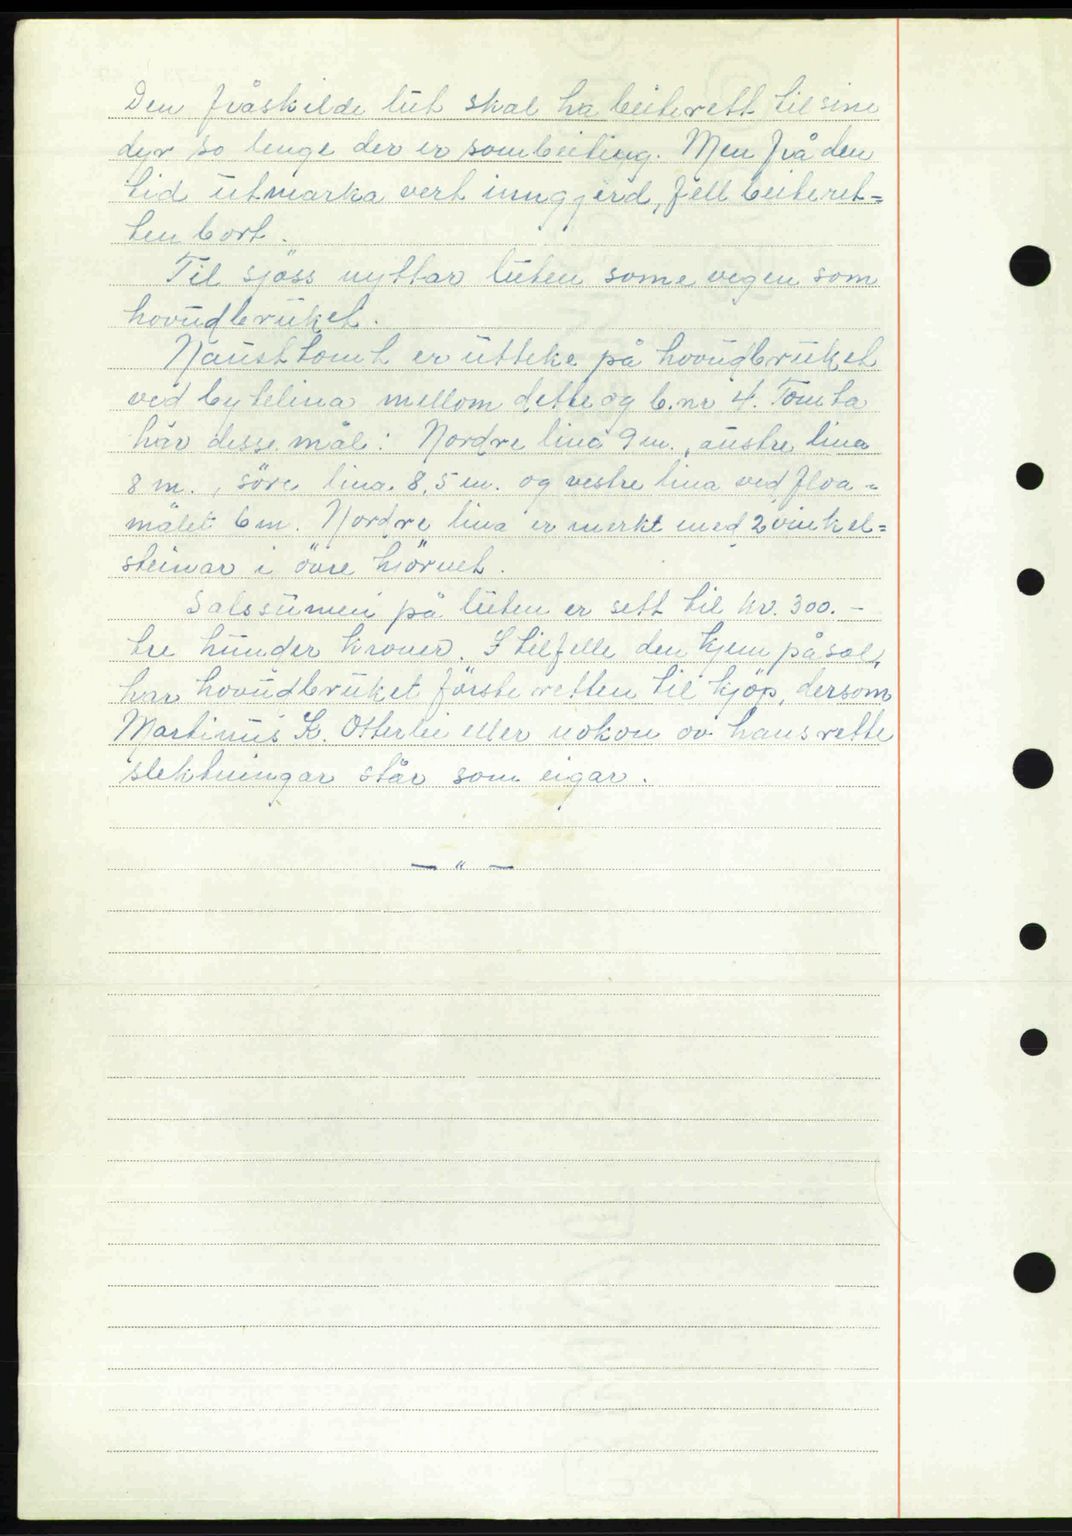 Den fråskilde lut skal ha beiterett til sine
dyr so lenge der er sambeiting. Men frå den
tid utmarka vert inngjerd, fell beiteret=
ten bort.
Til sjöss nyttar luten some vegen som
hovudbruket.
Nausttomt er utteke på hovudbruket
ved bytelina mellom dette og b.nr 4. Tomta
hår desse mål: Nordre lina 9 m., austre lina
8 m., söre lina 8,5 m. og vestre lina ved floa=
målet 6 m. Nordre lina er merkt med 2 vinkel=
steinar i övre hjörnet.
Salssumen på luten er sett til kr. 300.-
tre hunder kroner. I tilfelle den kjem på sal,
har hovudbruket förste retten til kjöp, dersom
Martinus K. Otterlei eller nokon av hans rette
slektningar står som eigar.
— " —